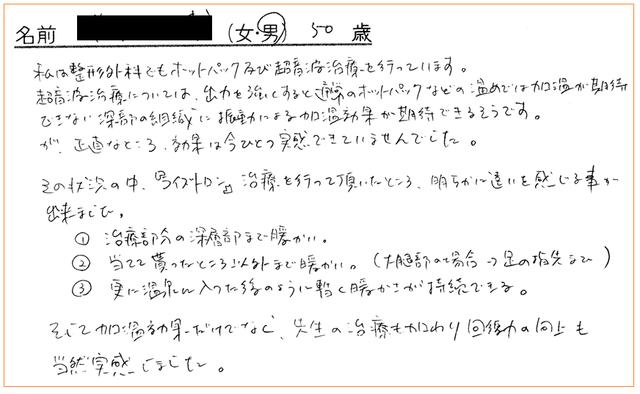 名前 (女・男) 50 歳
私は整形外科でもホットパック及び超音波治療を行っています。
超音波治療については、出力を強くすると通常のホットパックなどの温めでは加温が期待
できない深部の組織に振動による加温効果が期待できるそうです。
が、正直なところ、効果は今ひとつ実感できていませんでした。
その状況の中、『ライズトロン』治療を行って頂いたところ、明らかに違いを感じる事が
出来ました。
① 治療部分の深層部まで暖かい。
② 当てて貰ったところ以外まで暖かい。(大腿部の場合→足の指先まで)
③ 更に温泉に入った後のように暫く暖かさが持続できる。
そして加温効果だけでなく、先生の治療も加わり回復力の向上も
当然実感しました。